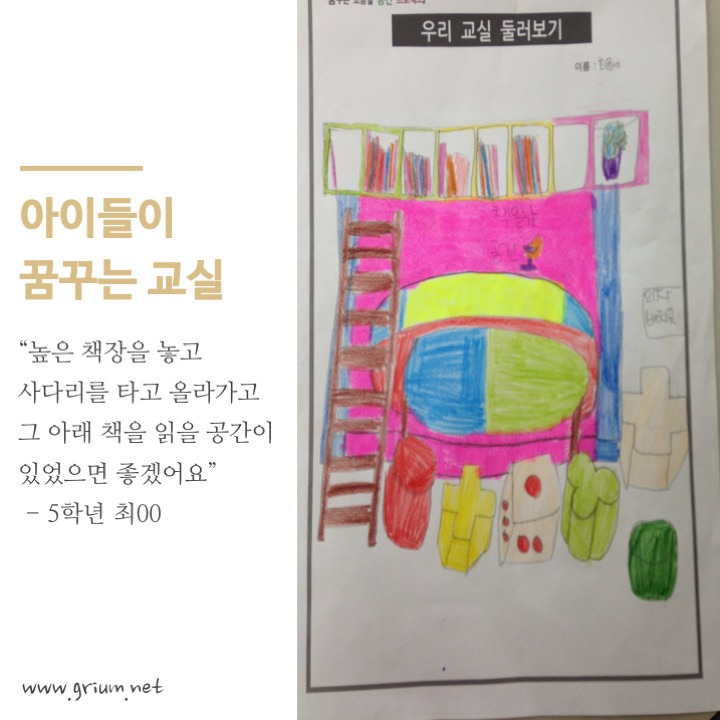 아이들이
꿈꾸는 교실
“높은 책장을 놓고
사다리를 타고 올라가고
그 아래 책을 읽을 공간이
있었으면 좋겠어요”
– 5학년 최00
www.grium.net
우리 교실 둘러보기
이름 :
책 읽는
공간
의자